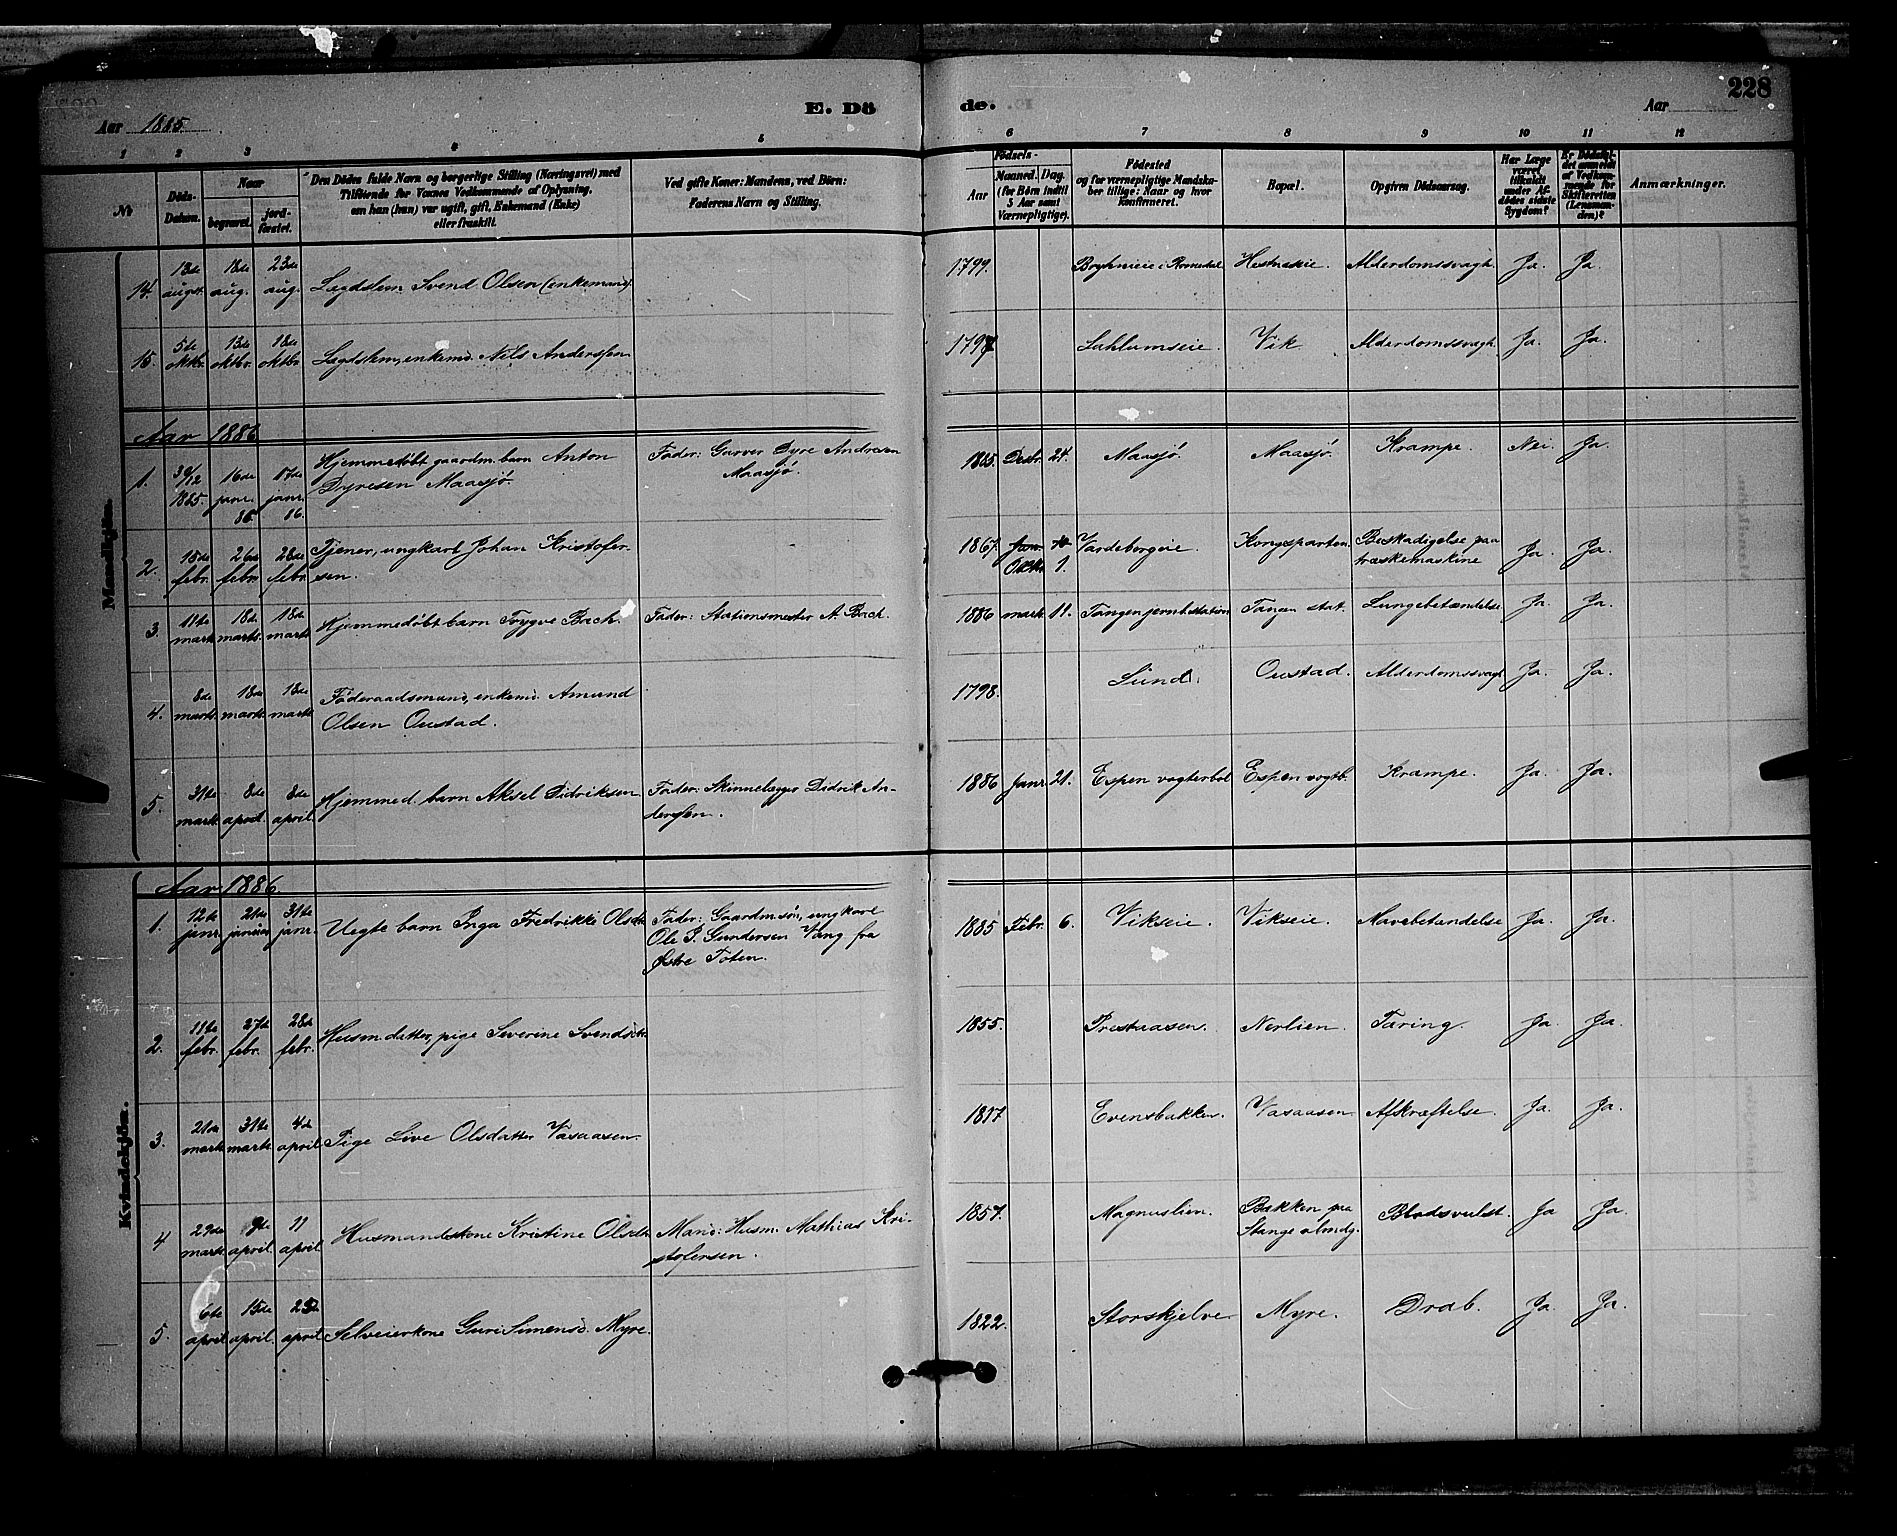 228
E. Dö de.
Aar 1885. Aar
1 2 3 4 5 6 7 8 9 10 11 12
№
Döds-Datum.
Naar
begravet.
jord-fæstet.
Den Dödes fulde Navn og borgerlige Stilling (Næringsvei) med
Tilföiende for Voxnes Vedkommende af Oplysning,
om han (hun) var ugift, gift, Enkemand (Enke)
eller fraskilt.
Ved gifte Koner: Mandens, ved Börn:
Faderens Navn og Stilling.
Födsels-
Aar
Maaned. Dag.
(for Börn indtil
5 Aar samt
Værnepligtige).
Födested
og for værnepligtige Mandska-
ber tillige: Naar og hvor
konfirmeret.
Bopæl.
Opgiven Dödsaarsag.
Har Læge
været
tilkaldt
under Af-
dödes sidste
Sygdom?
Er Dödsfal-
det anmeldt
af Vedkom-
mende for
Skifteretten
(Lensman-
den)?
Anmærkninger.
Mandkjön.
14. 13de augst. 18de aug. 23de aug. Lægdslem Svend Olsen (enkemand) 1799. Bryhnieie i Romedal Hestnæseie. Alderdomssvagh. Ja. Ja.
15. 5te oktbr. 13de oktbr. 18de oktbr. Lægdslem, enkemd. Nils Anderssen 1797 Sahlumseie. Vik Alderdomssvagh. Ja. Ja.
Aar 1886
1. 30/12 1885. 16de janr. 86. 17de janr. 86. Hjemmedøbt gaardm. barn Anton
Dyresen Maasjø. Fader: Garver Dyre Andresen
Maasjø. 1885. Decbr. 24. Maasjø. Maasjø. Krampe. Nei. Ja.
2. 15de febr. 26de febr. 28de febr. Tjener, ungkarl Johan Kristofer-
sen. 1867. Janr. Oktbr. 1. Vardebergeie. Kongsparten. Beskadigelse paa
træskemaskine Ja. Ja.
3. 11te marts 18de marts. 18de marts Hjemmedøbt barn Trygve Bach. Fader: Stationsmester A. Bach. 1886 marts 11. Tangen jernb.station Tangen stat. Lungebetændelse Ja. Ja.
4. 8de marts. 18de marts. 18de marts Føderaadsmand, enkemd. Amund
Olsen Oustad. 1798. Lund. Oustad. Alderdomssvagh Ja. Ja.
5. 31te marts. 8de april. 8de april. Hjemmed. barn Aksel Didriksen Fader: Skinnelægger Didrik An-
derssen. 1886 Janr. 21. Espen vogterbol Espen vogtb. Krampe. Ja. Ja.
Kvindekjön.
Aar 1886.
1. 12te janr. 21de januar 31te janr. Uegte barn Inga Fredrikke Olsdtr. Fader: Gaardm.søn, ungkarl
Ole P. Gundersen Vang fra
Østre Toten. 1885 Febr. 6. Vikseie. Vikseie. Mavebetændelse Ja. Ja.
2. 11te febr. 27de febr. 28de febr. Husm.datter, pige Severine Svendsdtr. 1855. Prestaasen. Nerlien. Tæring. Ja. Ja.
3. 21de marts 31te marts 4de april Pige Live Olsdatter Vasaasen. 1817 Evensbakken. Vasaasen. Afkræftelse. Ja. Ja.
4 29de marts 9de april. 11 april Husmandskone Kristine Olsdtr. Mand: Husm. Mathias Kri-
stofersen. 1857. Magnuslien. Bakken paa
Stange almdg. Blodsvulst. Ja Ja.
5. 6te april 15de april. 25de april Selveierkone Guri Simensd. Myre. 1822. Storskjelve Myre. Drab. Ja. Ja.